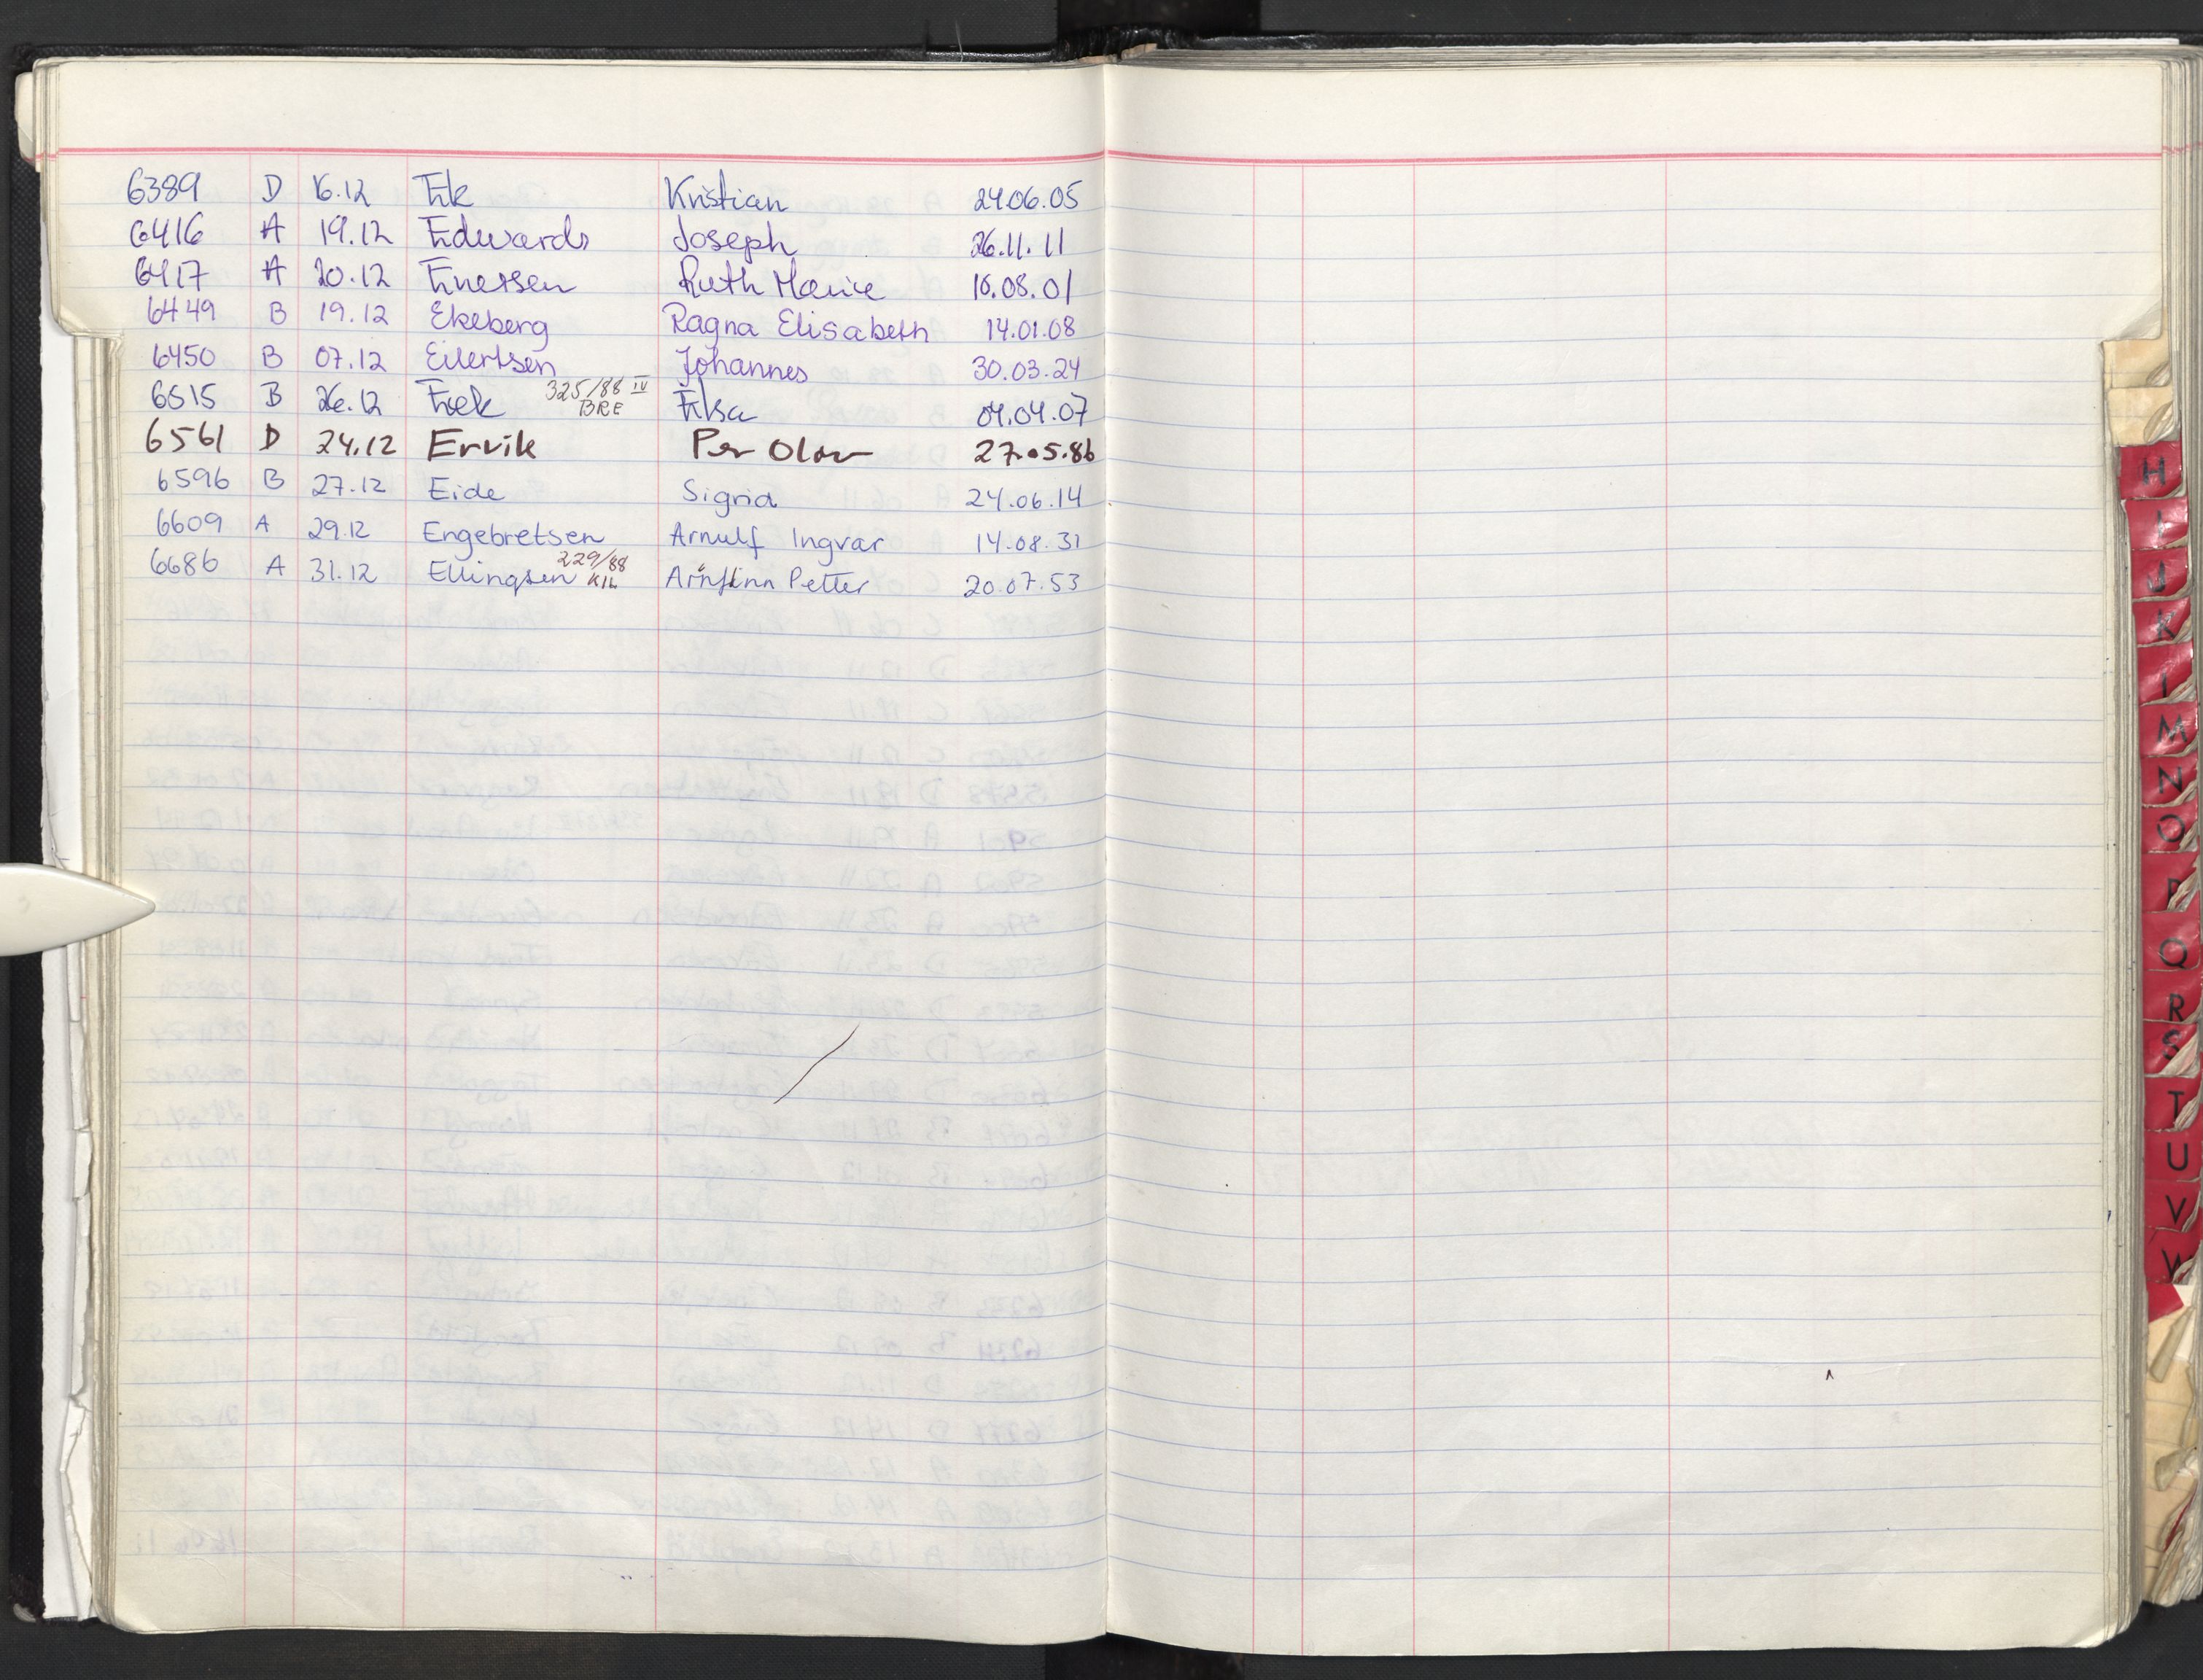 6389 D 16.12 Ek Kristian 24.06.05
6416 A 19.12 Edwards Joseph 26.11.11
6417 A 20.12 Enersen Ruth Marie 16.08.01
6449 B 19.12 Ekeberg Ragna Elisabeth 14.01.08
6450 B 07.12 Eilertsen Johannes 30.03.24
6515 B 26.12 Eek 325/88 IV BRE Elsa 04.04.07
6561 D 24.12 Ervik Per Olav 27.05.86
6596 B 27.12 Eide Sigrid 24.06.14
6609 A 29.12 Engebretsen Arnulf Ingvar 14.08.31
6686 A 31.12 Ellingsen 229/88 KIL Arnfinn Petter 20.07.53
H
I
J
K
L
M
N
O
P
Q
R
S
T
U
V
W